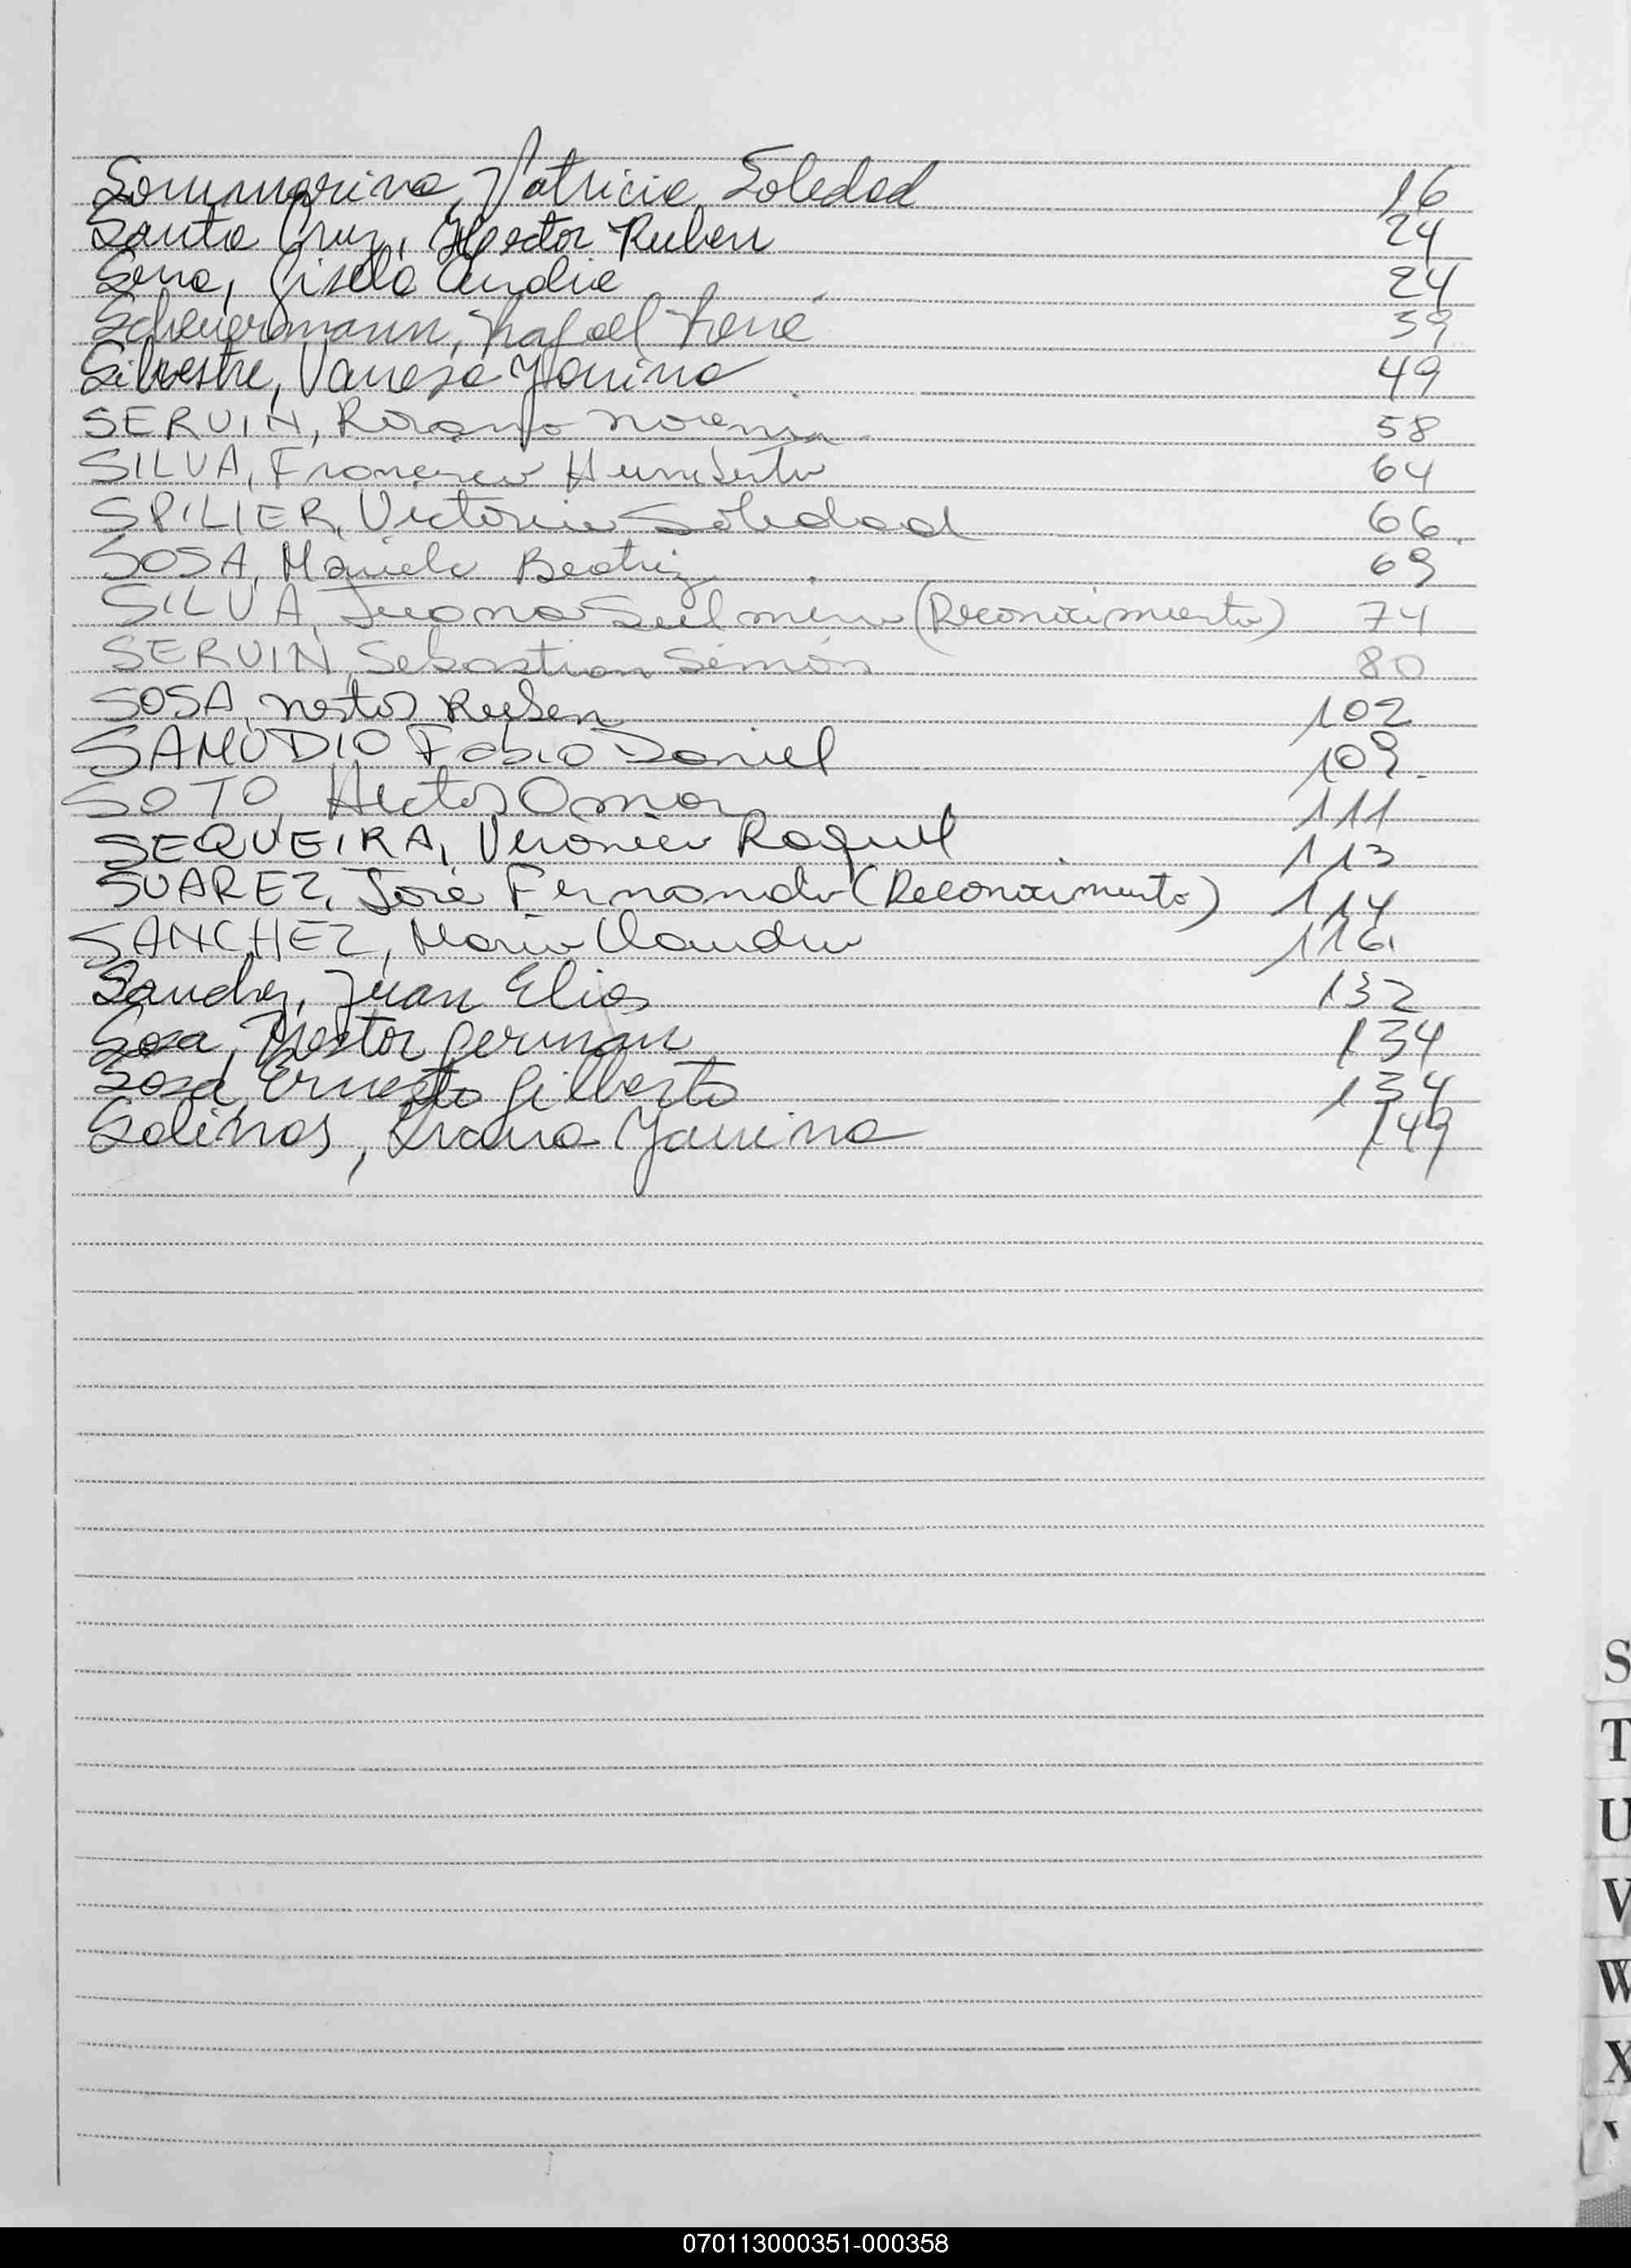 Sommariva, Patricia Soledad 16
Santa Cruz, Hector Ruben 24
Sena, Gisela Analia 24
Scheuermann, Rafael René 39
Silvestre, Vanesa Yanina 49
SERVIN, Rosana Noemia 58
SILVA, Francisco Humberto 64
SPILIER, Victoria Soledad 66
SOSA, Mariela Beatriz 69
SILVA, Juana (Reconocimiento) 74
SERVIN, Sebastian Simón 80
SOSA, Nestor Ruben 102
SAMUDIO Fabio Daniel 109
SOTO, Hector Omar 111
SEQUEIRA, Verónica Raquel 113
SUAREZ, José Fernando (Reconocimiento) 114
SANCHEZ, Maria Claudia 116
Sanchez, Juan Elias 132
Sosa, Nestor German 134
Sosa, Ernesto Gilberto 134
Salinas, Yanina 149
S
T
U
V
W
X
070113000351-000358